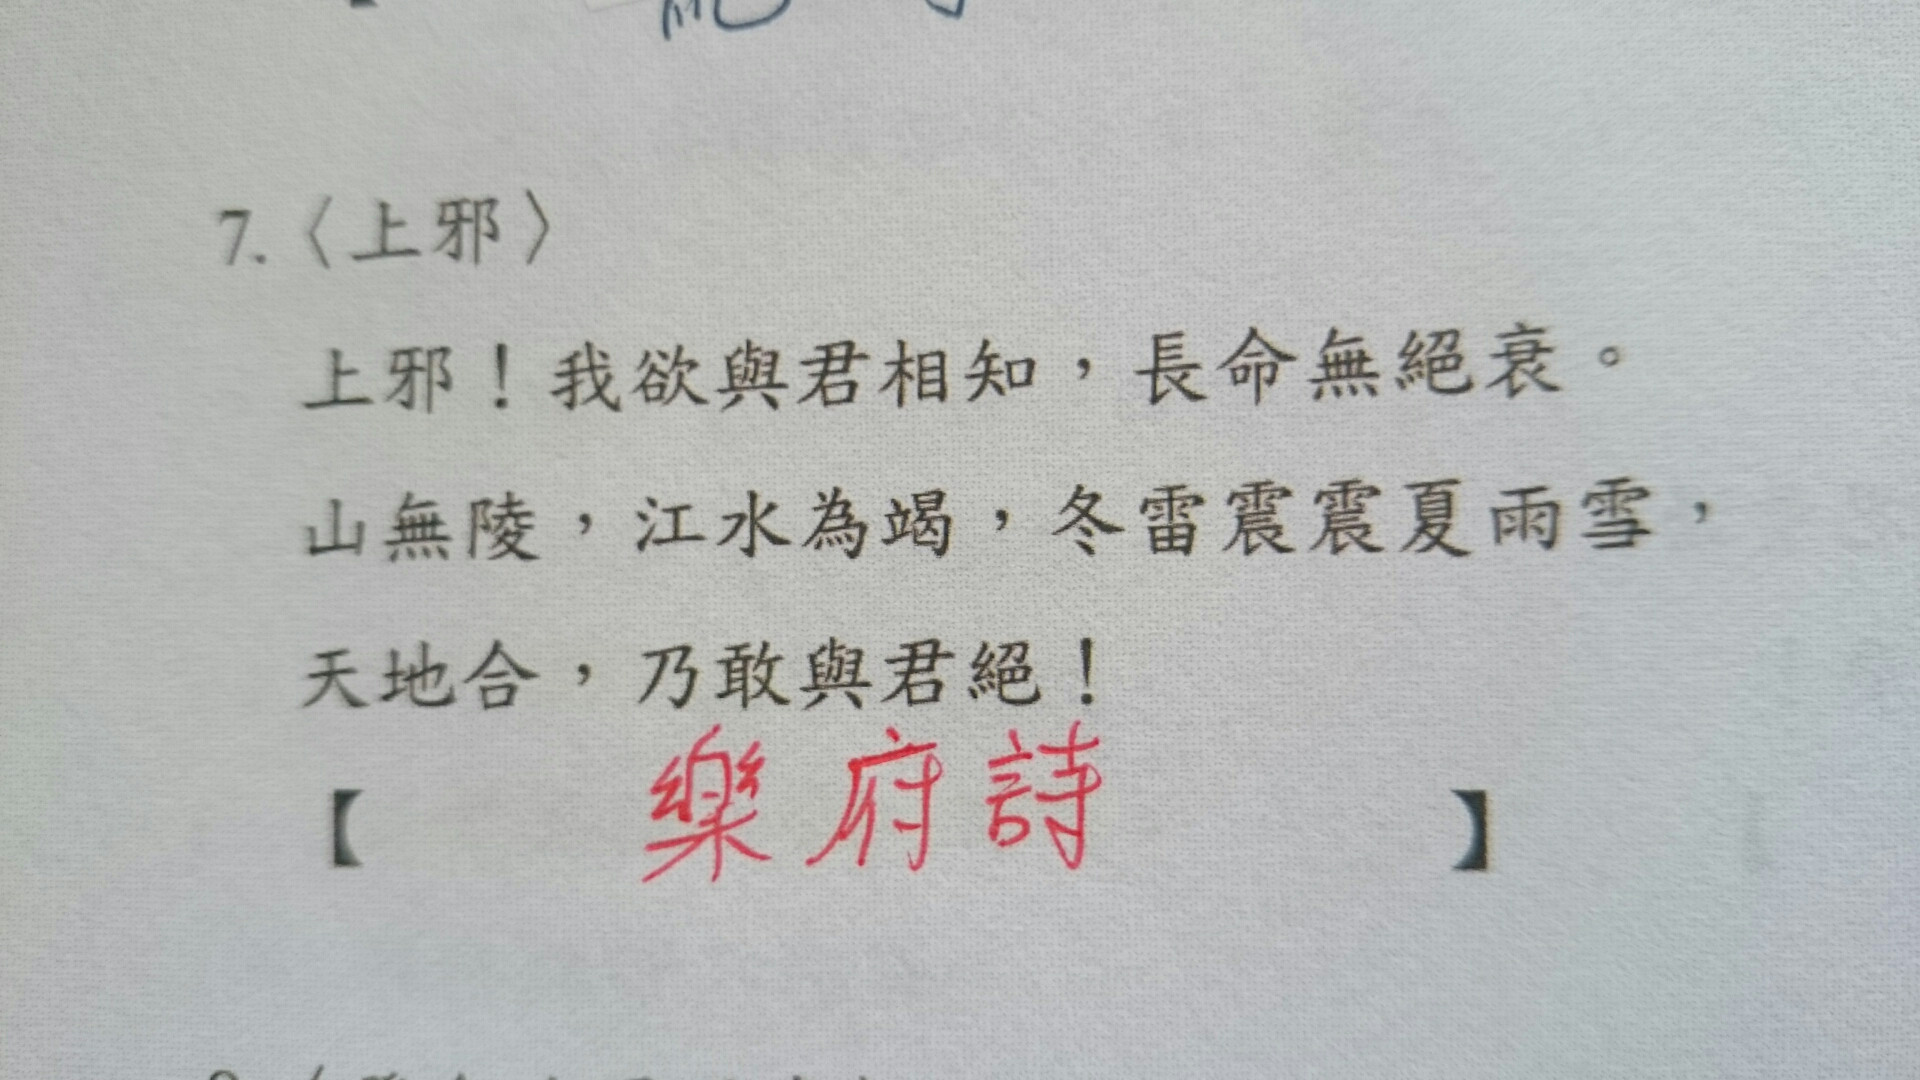 7.〈上邪〉
上邪！我欲與君相知，長命無絕衰。
山無陵，江水為竭，冬雷震震夏雨雪，
天地合，乃敢與君絕！
【 樂府詩 】